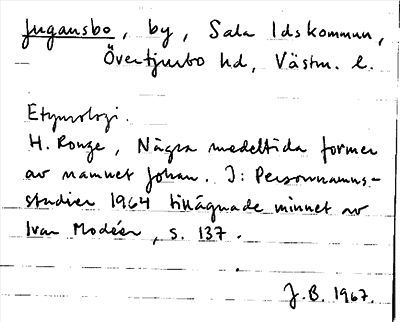 Jugansbo, by, Sala lds kommun,
Övertjurbo hd, Västm. l.
Etymologi.
H. Ronge, Några medeltida former
av namnet Johan. I: Personnamns-
studier 1964 tillägnade minnet av
Ivar Modéer, s. 137.
J.B. 1967.